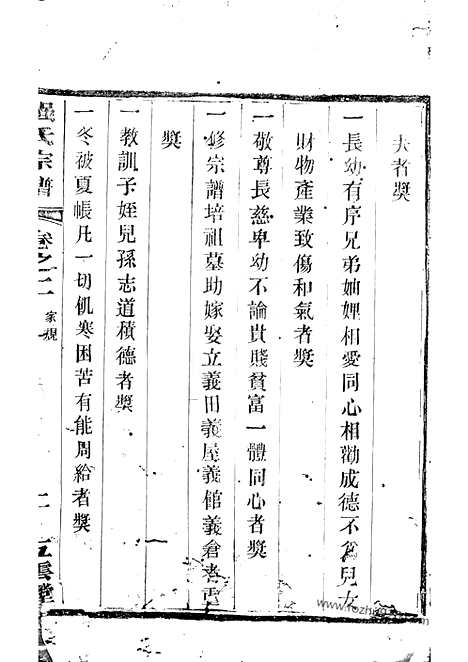 夫者獎
一長幼有序兄弟妯娌相愛同心相勸成德不爲兒女
財物產業致傷和氣者獎
一敬尊長慈卑幼不論貴賤貧富一體同心者獎
一修宗譜培祖墓助嫁娶立義田義屋義倌義倉者
獎
一教訓子姪兒孫志道積德者獎
一冬被夏帳凡一切飢寒困苦有能周給者獎
氏宗譜 卷之二 家規 二 五雲堂